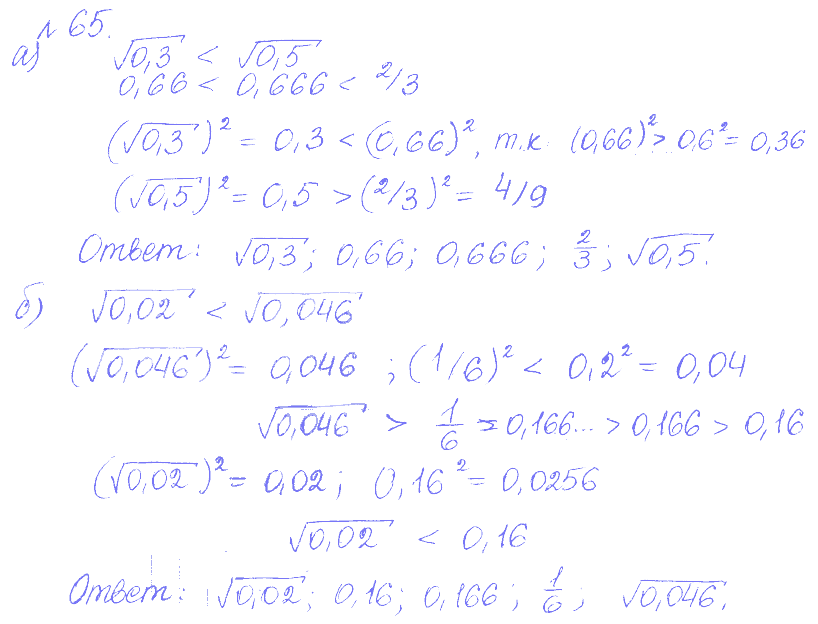 № 65.
а) √0,3 < √0,5
0,66 < 0,666 < 2/3
(√0,3)² = 0,3 < (0,66)², т.к. (0,66)² > 0,6² = 0,36
(√0,5)² = 0,5 > (2/3)² = 4/9
Ответ: √0,3; 0,66; 0,666; 2/3; √0,5.
б) √0,02 < √0,046
(√0,046)² = 0,046 ; (1/6)² < 0,2² = 0,04
√0,046 > 1/6 = 0,166... > 0,166 > 0,16
(√0,02)² = 0,02; 0,16² = 0,0256
√0,02 < 0,16
Ответ: √0,02; 0,16; 0,166; 1/6; √0,046.